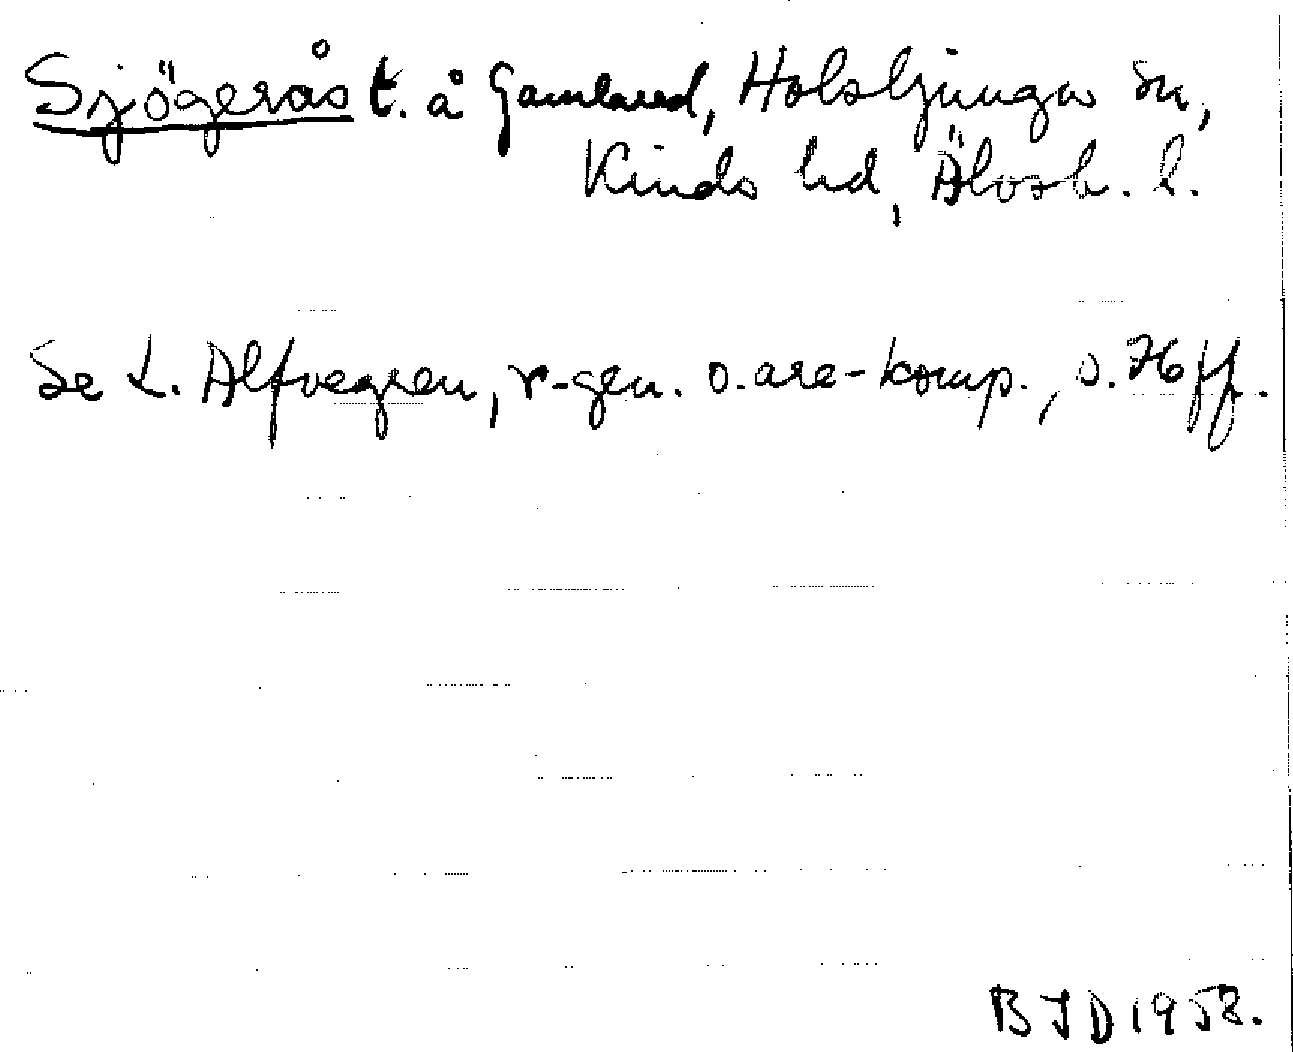 Sjögerås t. å Gamlared, Holsljunga sn,
Kinds hd, Älvsb. l.
Se L. Alfvegren, r-gen. o. are-komp., s. 76 ff.
BJD 1958.